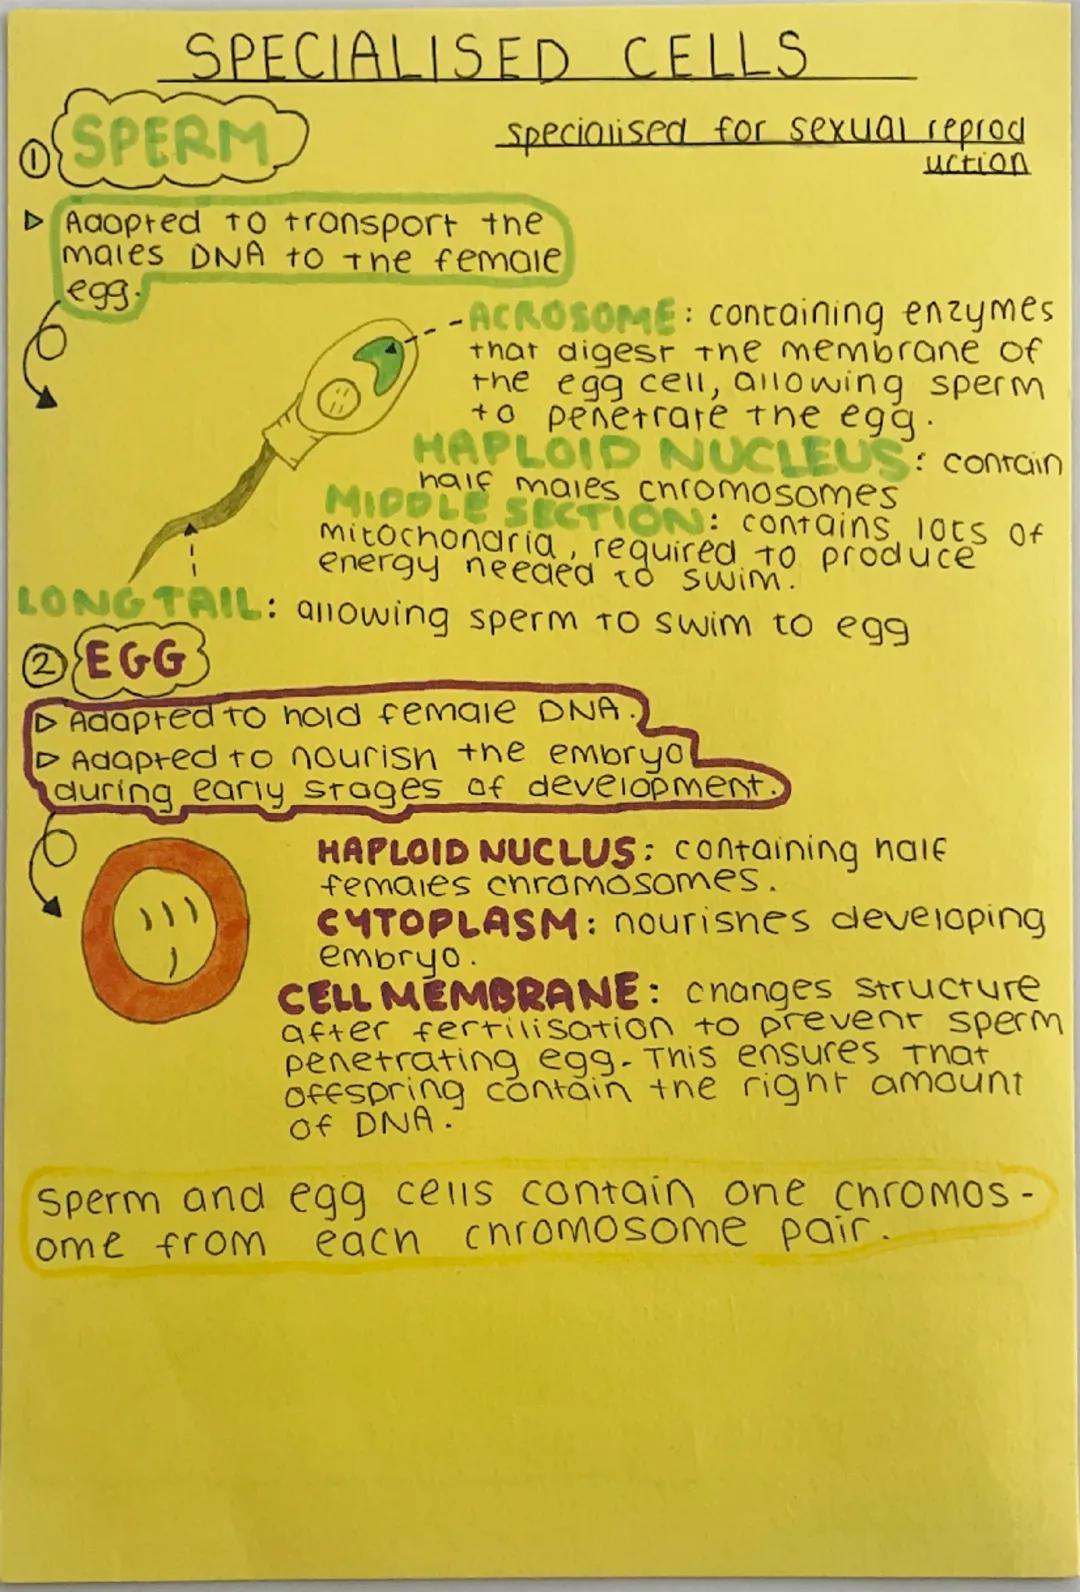 SPECIALISED CELLS
① SPERM
specialised for sexual reprod
uction
▷ Adapted to transport the
males DNA to the female
egg.
ACROSOME: containing enzymes
that digest the membrane of
the egg cell, allowing sperm
to penetrate the egg.
HAPLOID NUCLEUS: contain
half males chromosomes
MIDDLE SECTION: contains lots of
mitochondria, required to produce
energy needed to swim.
LONG TAIL: allowing sperm to swim to egg
② EGG
▷ Adapted to hold female DNA.
▷ Adapted to nourish the embryo
during early stages of development.
HAPLOID NUCLUS: containing half
females chromosomes.
CYTOPLASM: nourishes developing
embryo.
CELL MEMBRANE: changes structure
after fertilisation to prevent sperm
penetrating egg. This ensures that
offspring contain the right amount
of DNA.
Sperm and egg cells contain one chromos-
ome from each chromosome pair.